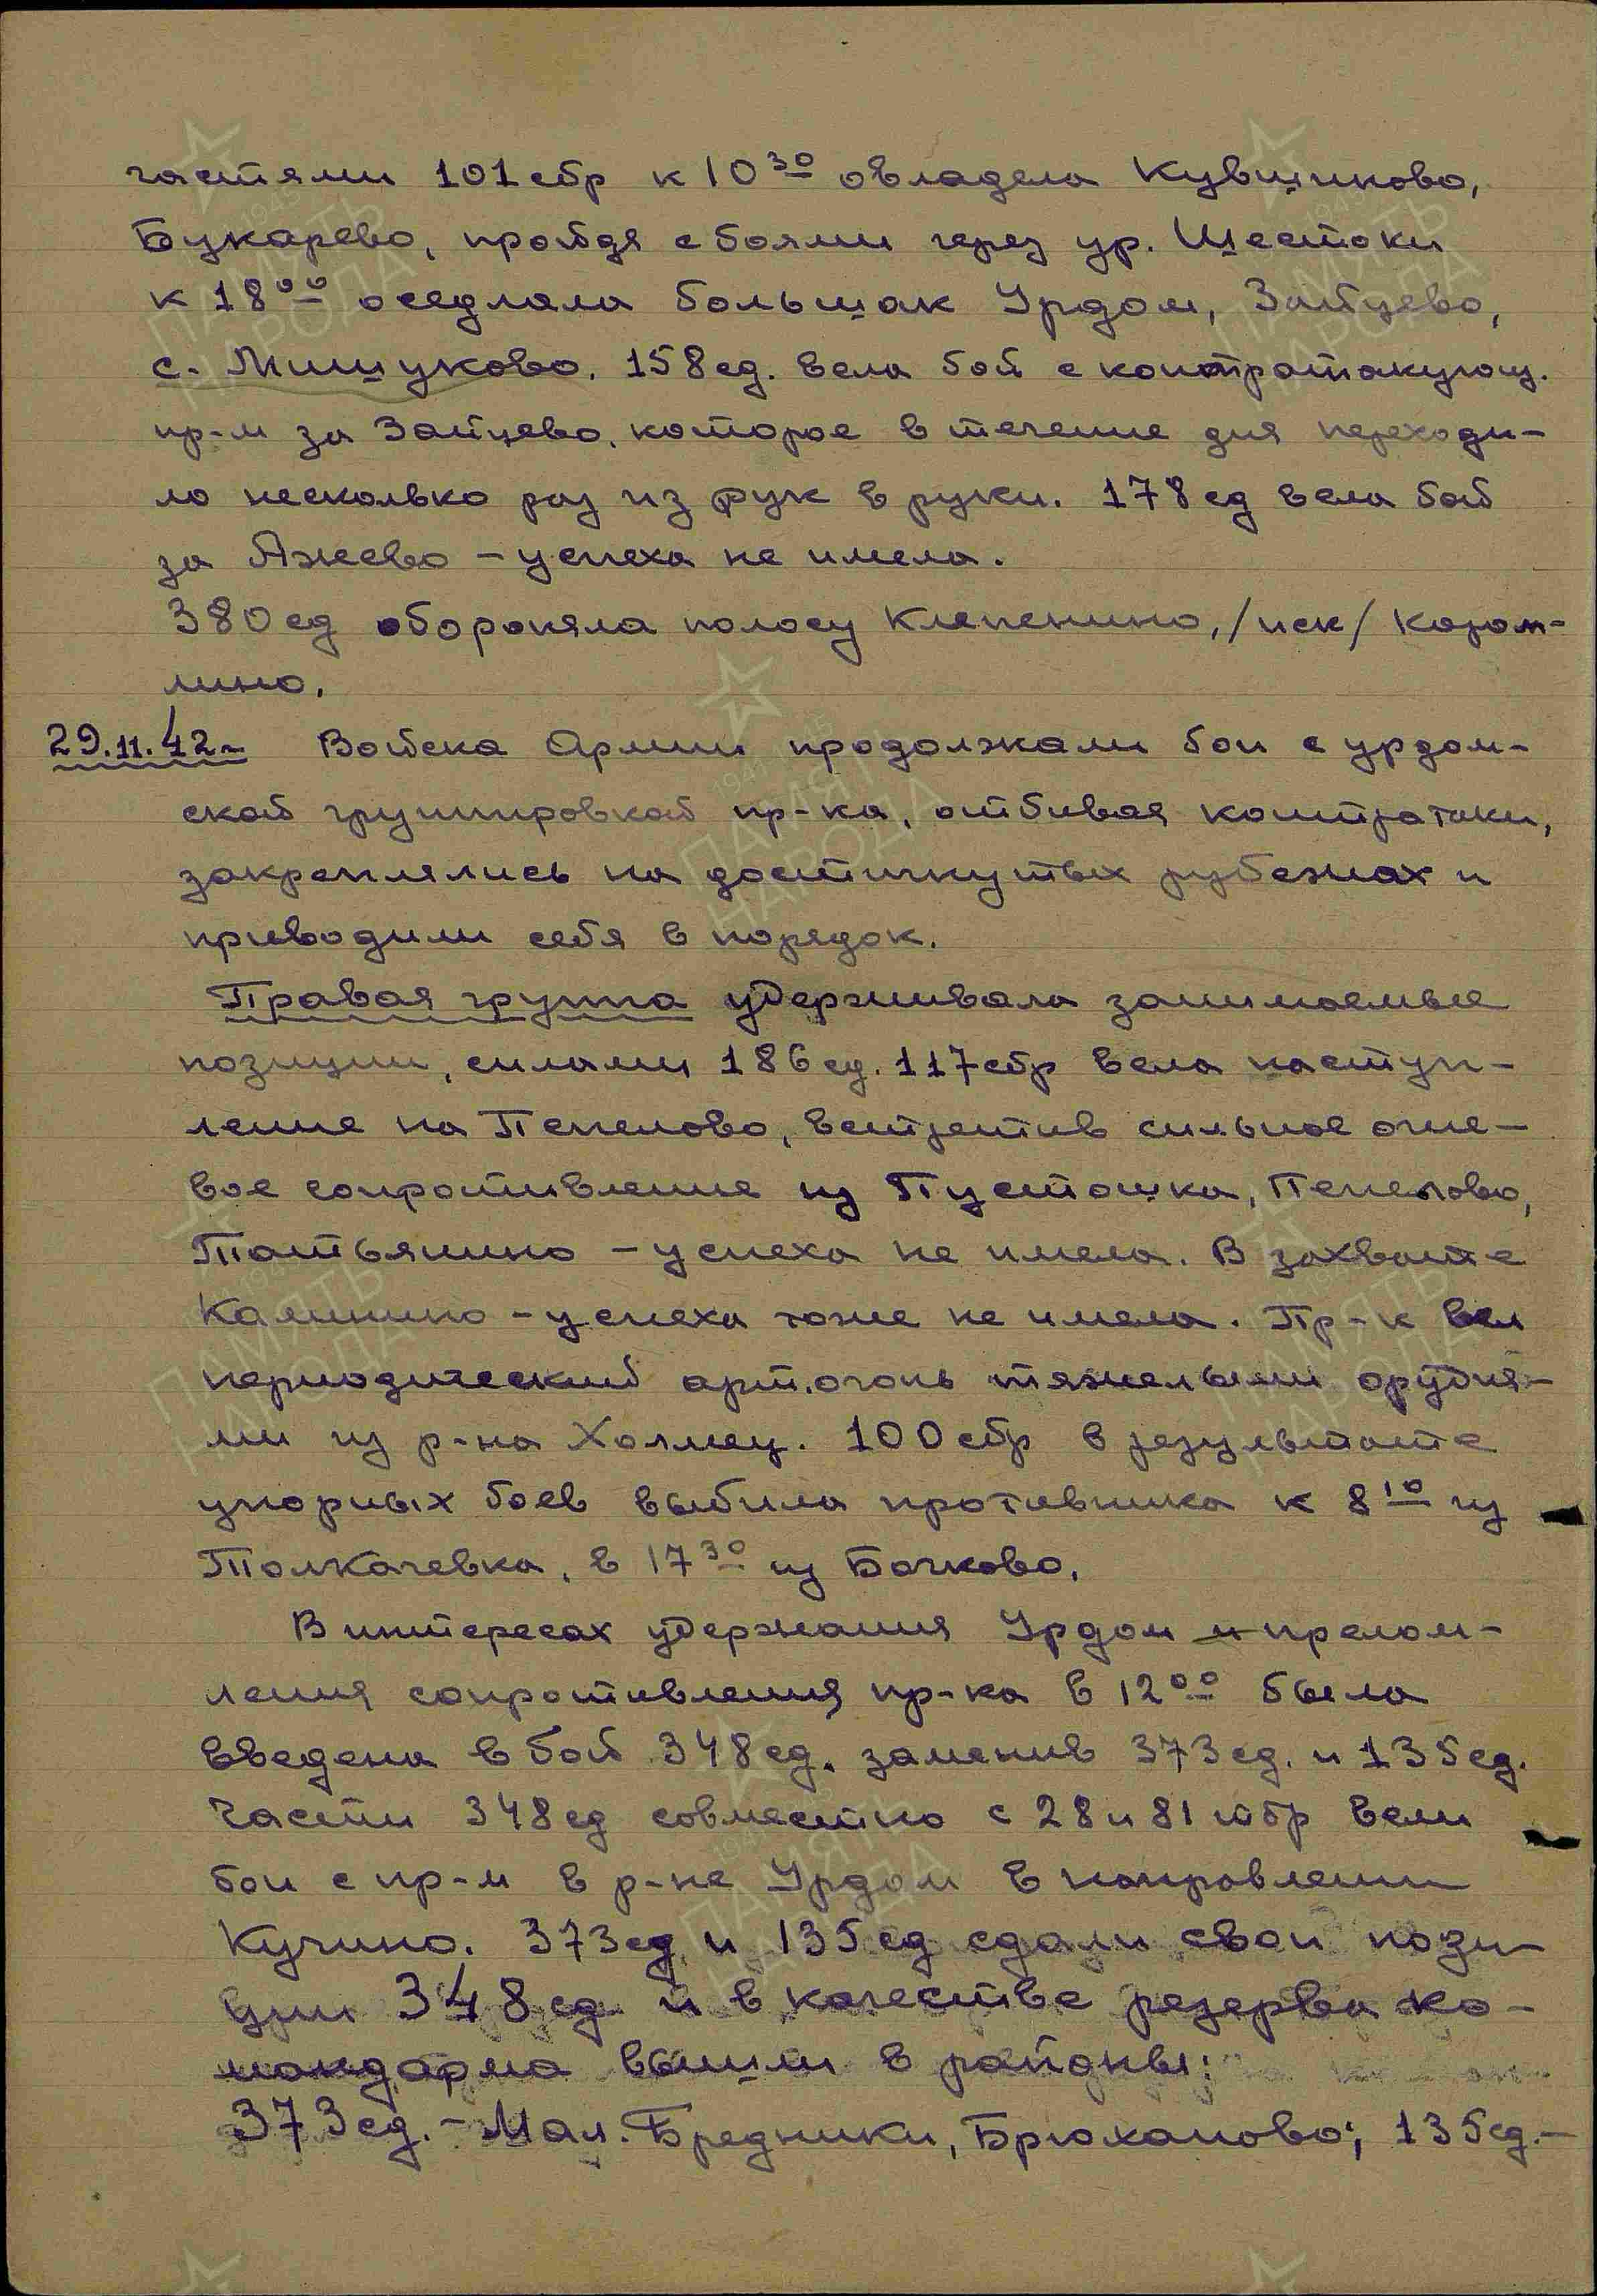 частями 101 сбр к 10³⁰ овладела Кувшиново,
Букарево, пройдя с боями через ур. Шестоки
к 18⁰⁰ оседлала большак Урдом, Зайцево,
с. Мишуково. 158 сд. вела бой с контратакующ.
пр-м за Зайцево, которое в течение дня переходи-
ло несколько раз из рук в руки. 178 сд вела бой
за Ажево – успеха не имела.
380 сд обороняла полосу Клепенино, /иск/ Козом-
лино.
29.11.42- Войска Армии продолжали бои с урдом-
ской группировкой пр-ка, отбивая контратаки,
закреплялись на достигнутых рубежах и
приводили себя в порядок.
Правая группа удерживала занимаемые
позиции, силами 186 сд. 117 сбр вела наступ-
ление на Пепелово, встретив сильное огне-
вое сопротивление из Пустошка, Пепелово,
Татьянино – успеха не имела. В захвате
Калинино – успеха тоже не имела. Пр-к вел
периодический арт. огонь тяжелыми орудия-
ми из р-на Холмец. 100 сбр в результате
упорных боев выбила противника к 8¹⁰ из
Толкачевка, в 17³⁰ из Бочково.
В интересах удержания Урдом и прелом-
ления сопротивления пр-ка в 12⁰⁰ была
введена в бой 348 сд. заменив 373 сд. и 135 сд.
Части 348 сд совместно с 28 и 81 тбр вели
бои с пр-м в р-не Урдом в направлении
Кучино. 373 сд и 135 сд сдали свои пози-
ции 348 сд и в качестве резерва ко-
мандарма вышли в районы:
373 сд. – Мал. Бредники, Брюханово; 135 сд. –
ПАМЯТЬ
НАРОДА